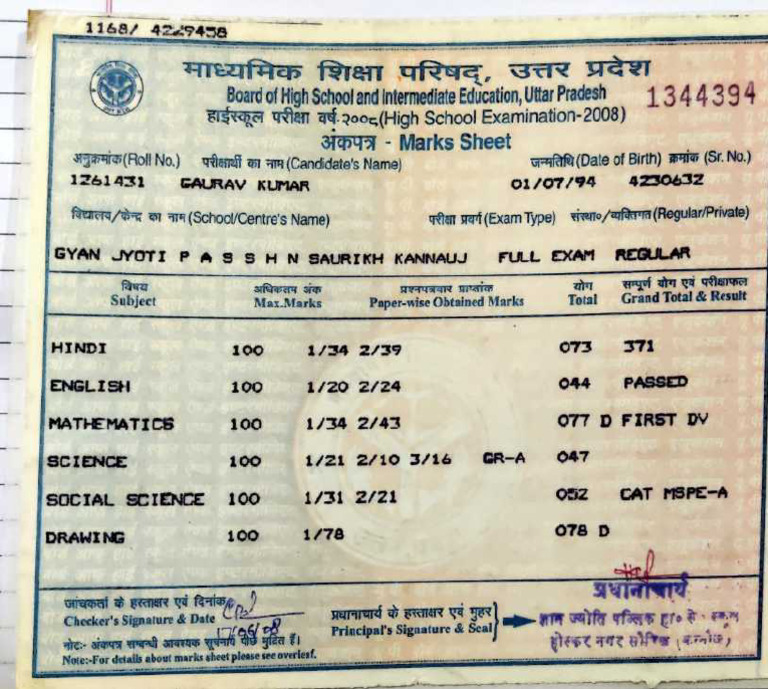 1168/ 4229458
माध्यमिक शिक्षा परिषद्, उत्तर प्रदेश
Board of High School and Intermediate Education, Uttar Pradesh
1344394
हाईस्कूल परीक्षा वर्ष-२००८(High School Examination-2008)
अंकपत्र - Marks Sheet
अनुक्रमांक(Roll No.) परीक्षार्थी का नाम(Candidate's Name) जन्मतिथि(Date of Birth) क्रमांक (Sr. No.)
1261431 GAURAV KUMAR 01/07/94 4230632
विद्यालय/केन्द्र का नाम(School/Centre's Name) परीक्षा प्रवर्ग(Exam Type) संस्था०/व्यक्तिगत(Regular/Private)
GYAN JYOTI P A S S H N SAURIKH KANNAUJ FULL EXAM REGULAR
विषय अधिकतम अंक प्रश्नपत्रवार प्राप्तांक योग सम्पूर्ण योग एवं परीक्षाफल
Subject Max.Marks Paper-wise Obtained Marks Total Grand Total & Result
HINDI 100 1/34 2/39 073 371
ENGLISH 100 1/20 2/24 044 PASSED
MATHEMATICS 100 1/34 2/43 077 D FIRST DV
SCIENCE 100 1/21 2/10 3/16 GR-A 047
SOCIAL SCIENCE 100 1/31 2/21 052 CAT MSPE-A
DRAWING 100 1/78 078 D
प्रधानाचार्य
जांचकर्ता के हस्ताक्षर एवं दिनांक
Checker's Signature & Date
प्रधानाचार्य के हस्ताक्षर एवं मुहर
Principal's Signature & Seal
ज्ञान ज्योति पब्लिक हा० से० स्कूल
नगर सौरिख (कन्नौज)
नोट:- अंकपत्र सम्बन्धी आवश्यक सूचनायें पीछे मुद्रित हैं।
Note:-For details about marks sheet please see overleaf.